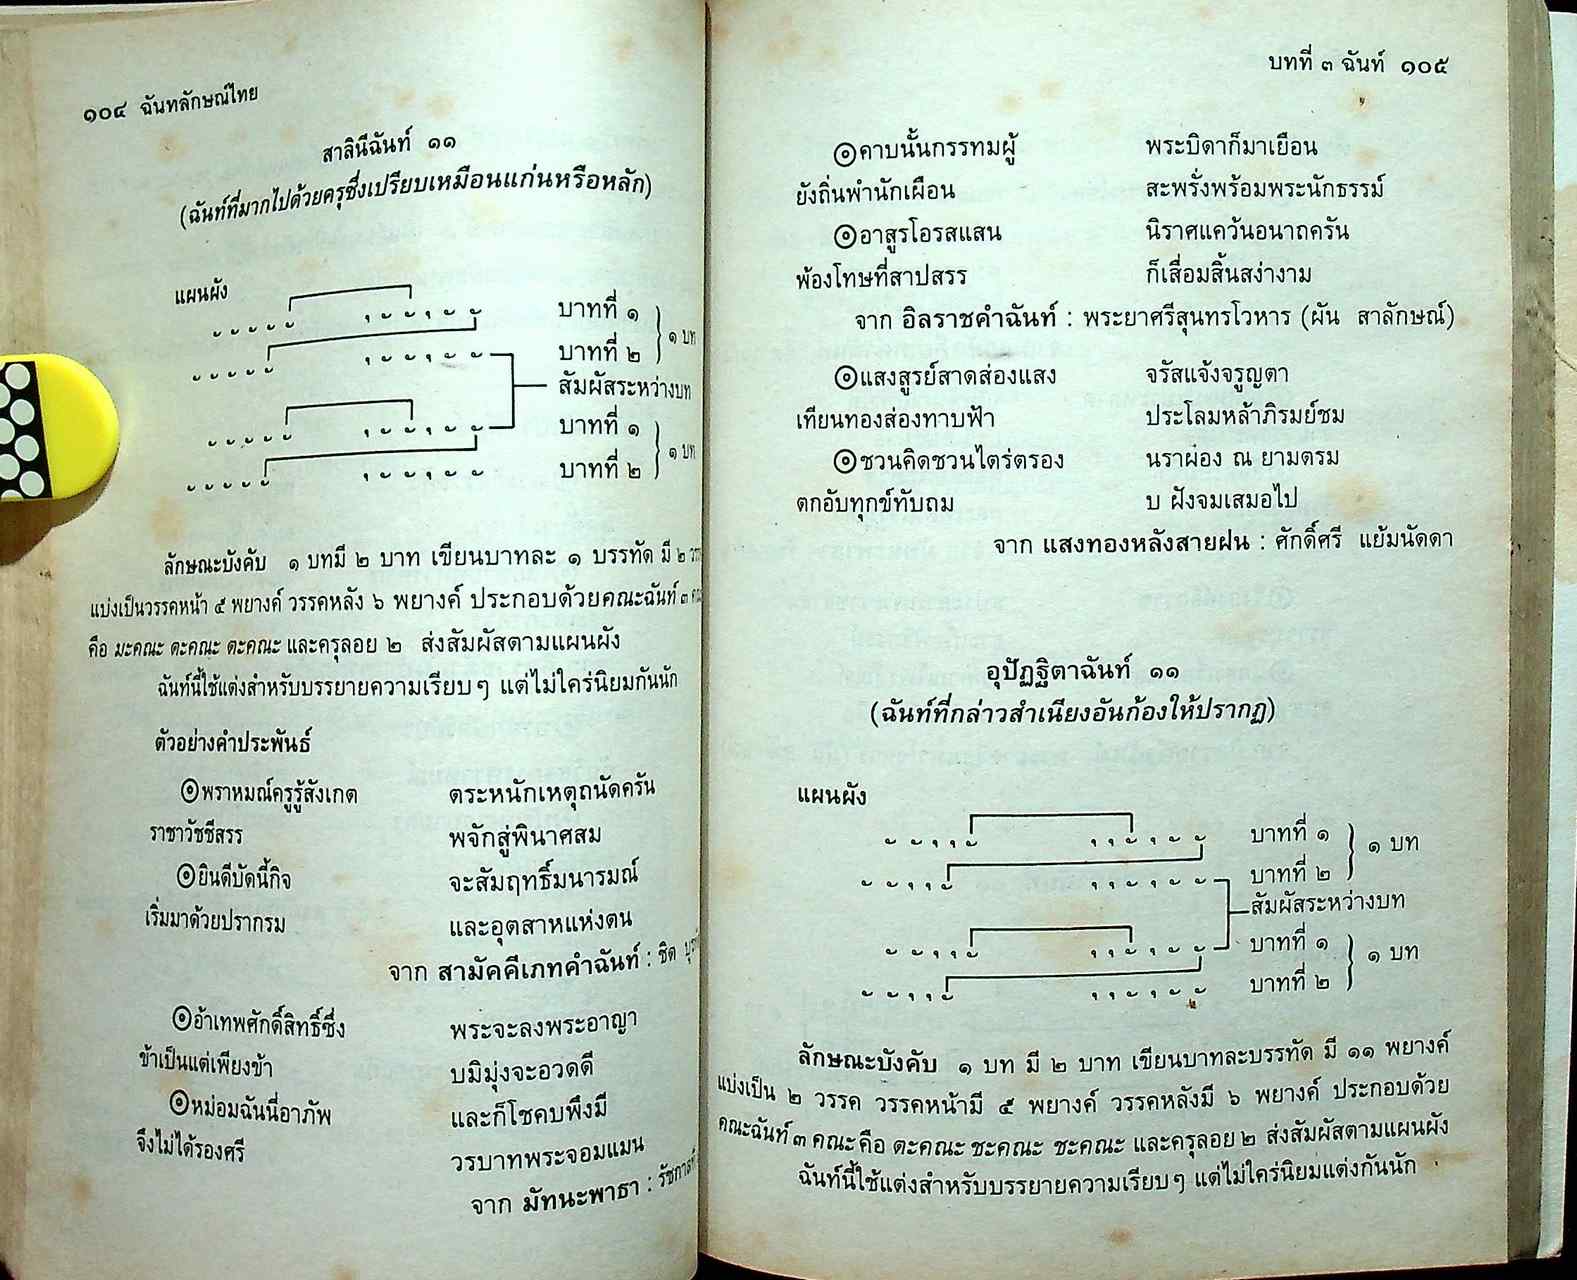 ๑๐๔ ฉันทลักษณ์ไทย
สาลินีฉันท์ ๑๑
(ฉันท์ที่มากไปด้วยครุซึ่งเปรียบเหมือนแก่นหรือหลัก)
แผนผัง
บาทที่ ๑
๑ บท
บาทที่ ๒
สัมผัสระหว่างบท
บาทที่ ๑
๑ บท
บาทที่ ๒
ลักษณะบังคับ ๑ บทมี ๒ บาท เขียนบาทละ ๑ บรรทัด มี ๒
แบ่งเป็นวรรคหน้า ๕ พยางค์ วรรคหลัง ๖ พยางค์ ประกอบด้วยคณะฉันท์ ๓
คือ มะคณะ ตะคณะ ตะคณะ และครุลอย ๒ ส่งสัมผัสตามแผนผัง
ฉันท์นี้ใช้แต่งสำหรับบรรยายความเรียบๆ แต่ไม่ใคร่นิยมกันนัก
ตัวอย่างคำประพันธ์
๏พราหมณ์ครูรู้สังเกต ตระหนักเหตุถนัดครัน
ราชาวัชชีสรร พจักสู่พินาศสม
๏ยินดีบัดนี้กิจ จะสัมฤทธิ์มนารมณ์
เริ่มมาด้วยปรากรม และอุตสาหแห่งตน
จาก สามัคคีเภทคำฉันท์ : ชิต
๏อ้าเทพศักดิ์สิทธิ์ซึ่ง พระจะลงพระอาญา
ข้าเป็นแต่เพียงข้า บมิมุ่งจะอวดดี
๏หม่อมฉันนี่อาภัพ และก็โชคบพึงมี
จึงไม่ได้รองศรี วรบาทพระจอมแมน
จาก มัทนะพาธา :
บทที่ ๓ ฉันท์ ๑๐๕
๏คาบนั้นกรรทมผู้ พระบิดาก็มาเยือน
ยังถิ่นพำนักเผือน สะพรั่งพร้อมพระนักธรรม์
๏อาสูรโอรสแสน นิราศแคว้นอนาถครัน
พ้องโทษที่สาปสรร ก็เสื่อมสิ้นสง่างาม
จาก อิลราชคำฉันท์ : พระยาศรีสุนทรโวหาร (ผัน สาลักษณ์)
๏แสงสูรย์สาดส่องแสง จรัสแจ้งจรูญตา
เทียนทองส่องทาบฟ้า ประโลมหล้าภิรมย์ชม
๏ชวนคิดชวนไตร่ตรอง นราผ่อง ณ ยามตรม
ตกอับทุกข์ทับถม บ ฝังจมเสมอไป
จาก แสงทองหลังสายฝน : ศักดิ์ศรี แย้มนัดดา
อุปัฏฐิตาฉันท์ ๑๑
(ฉันท์ที่กล่าวสำเนียงอันก้องให้ปรากฏ)
แผนผัง
บาทที่ ๑
๑ บท
บาทที่ ๒
สัมผัสระหว่างบท
บาทที่ ๑
๑ บท
บาทที่ ๒
ลักษณะบังคับ ๑ บท มี ๒ บาท เขียนบาทละบรรทัด มี ๑๑ พยางค์
แบ่งเป็น ๒ วรรค วรรคหน้ามี ๕ พยางค์ วรรคหลังมี ๖ พยางค์ ประกอบด้วย
คณะฉันท์ ๓ คณะ คือ ตะคณะ ชะคณะ ชะคณะ และครุลอย ๒ ส่งสัมผัสตามแผนผัง
ฉันท์นี้ใช้แต่งสำหรับบรรยายความเรียบๆ แต่ไม่ใคร่นิยมแต่งกันนัก